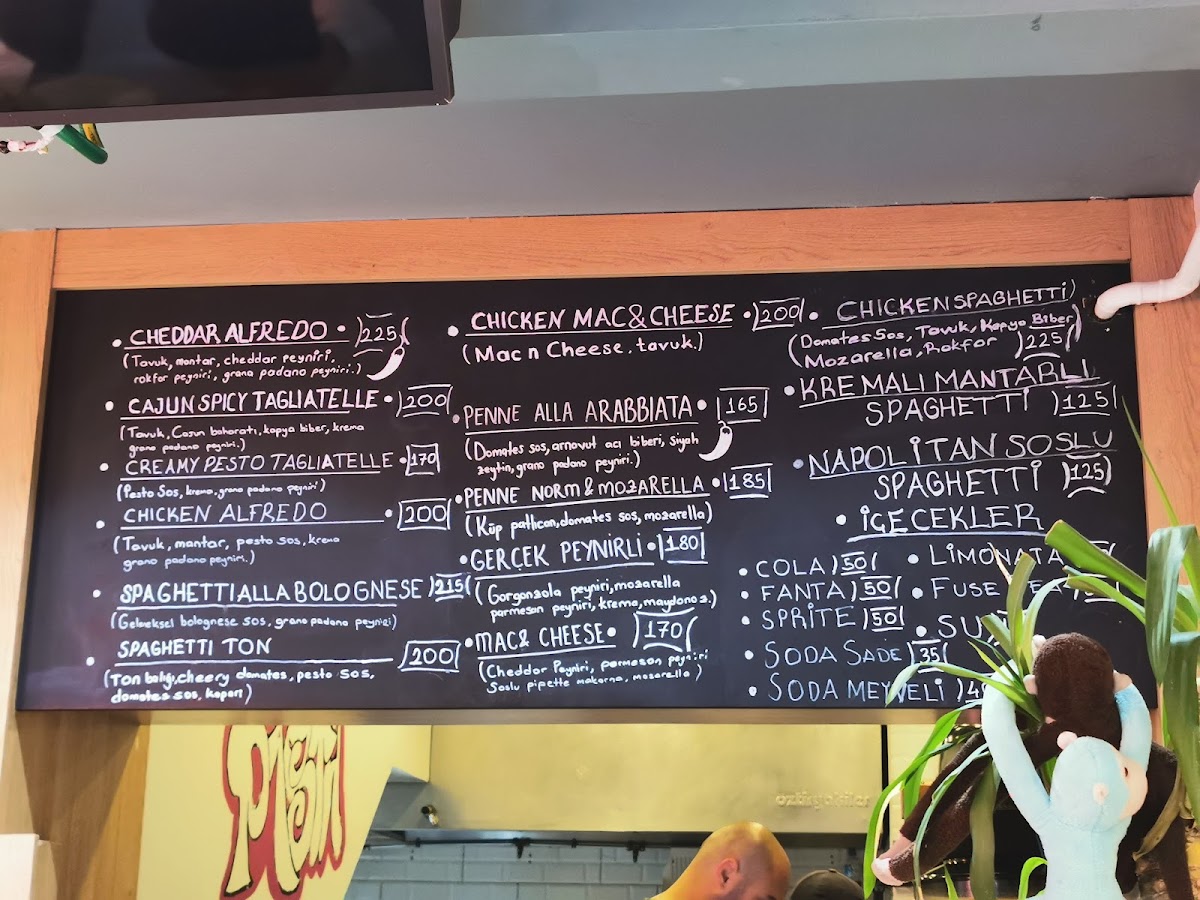 CHEDDAR ALFREDO • 225
(Tavuk, mantar, cheddar peyniri,
rokfor peyniri, grana padano peyniri.)
CAJUN SPICY TAGLIATELLE • 200
(Tavuk, Cajun baharatı, kapya biber, krema
grana padano peyniri.)
CREAMY PESTO TAGLIATELLE • 170
(Pesto Sos, krema, grana padano peyniri)
CHICKEN ALFREDO • 200
(Tavuk, mantar, pesto sos, krema
grana padano peyniri.)
SPAGHETTI ALLA BOLOGNESE 215
(Geleneksel bolognese sos, grana padano peyniri)
SPAGHETTI TON 200
(Ton balığı, cheery domates, pesto sos,
domates sos, kapari)
CHICKEN MAC & CHEESE • 200
(Mac n Cheese, tavuk.)
PENNE ALLA ARABBIATA • 165
(Domates sos, arnavut acı biberi, siyah
zeytin, grano padano peyniri.)
PENNE NORM & MOZARELLA • 185
(Küp patlıcan, domates sos, mozarella)
GERÇEK PEYNİRLİ • 180
(Gorgonzola peyniri, mozarella
parmesan peyniri, krema, maydonoz.)
MAC & CHEESE • 170
(Cheddar Peyniri, parmesan peyniri
Soslu pipette makarna, mozarella)
CHICKEN SPAGHETTİ
(Domates Sos, Tavuk, Kapya Biber
Mozarella, Rokfor) 225
KREMALI MANTARLI
SPAGHETTİ 125
NAPOLİTAN SOSLU
SPAGHETTİ 125
İÇECEKLER
COLA 50
FANTA 50
SPRİTE 50
SODA SADE 35
SODA MEYVELİ
LİMONATA
FUSE
oztiryakiler